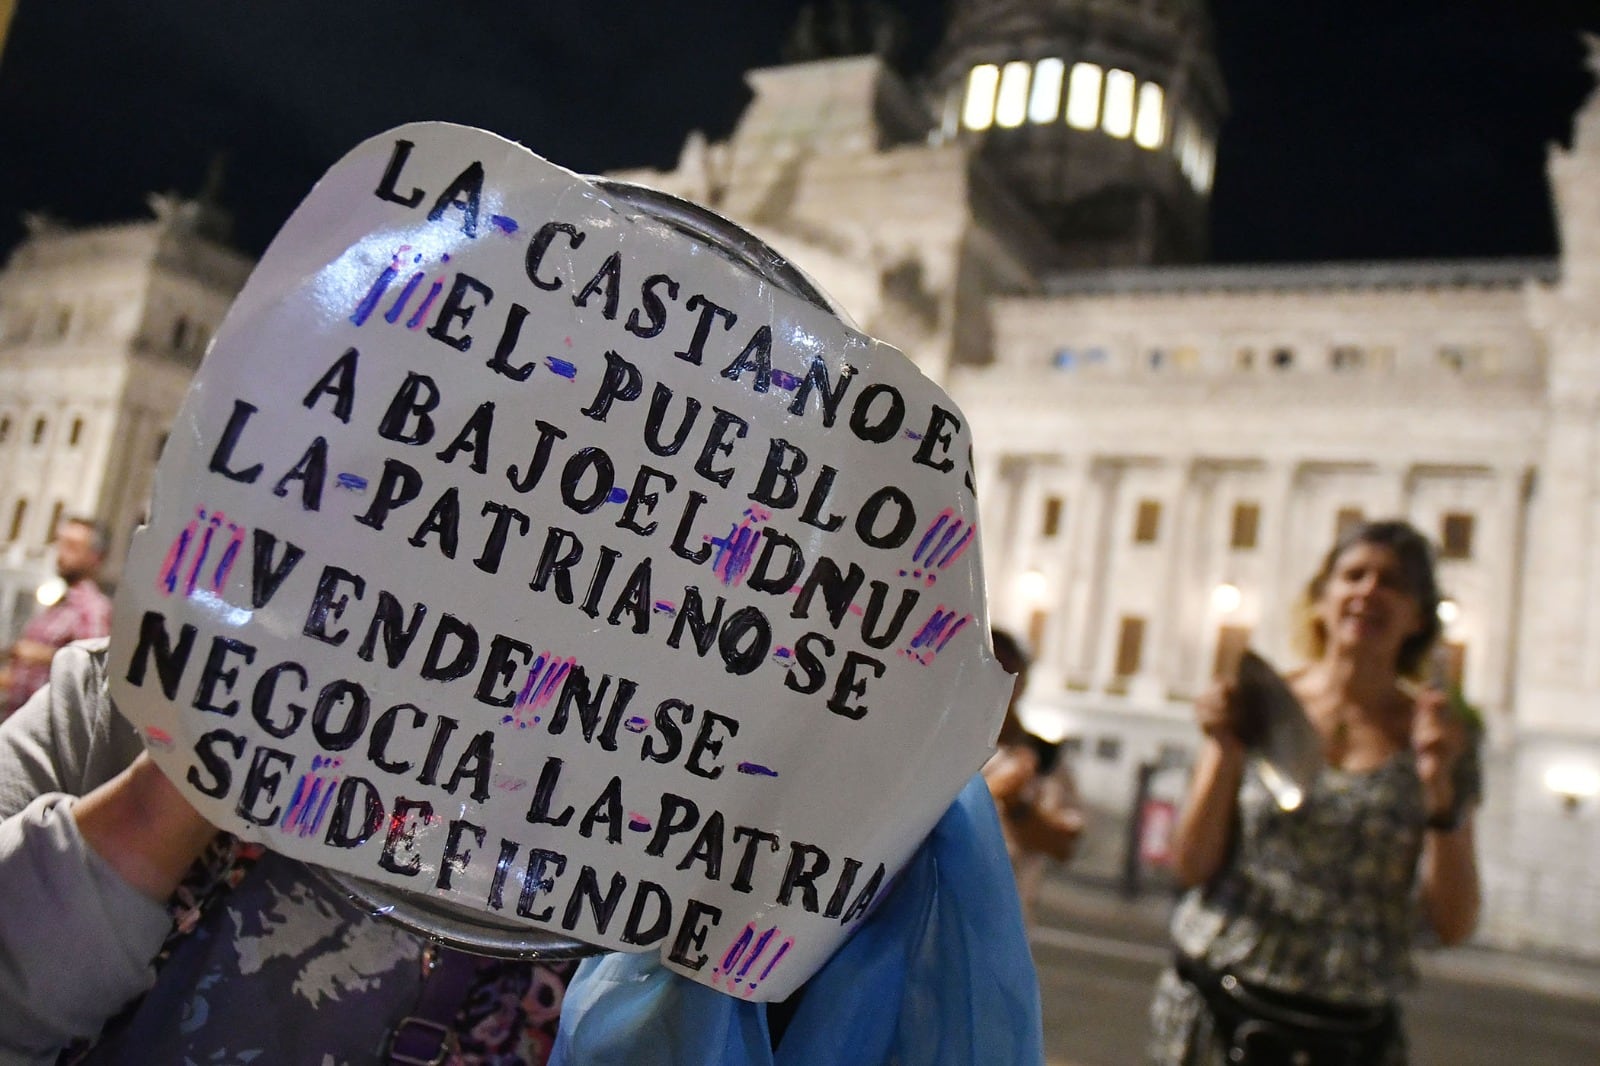 LA-CASTA-NO-ES
¡¡¡EL-PUEBLO!!!
ABAJO-EL-¡¡¡DNU!!!
LA-PATRIA-NO-SE
¡¡¡VENDE!!!NI-SE-
NEGOCIA-LA-PATRIA
-SE¡¡¡DEFIENDE!!!